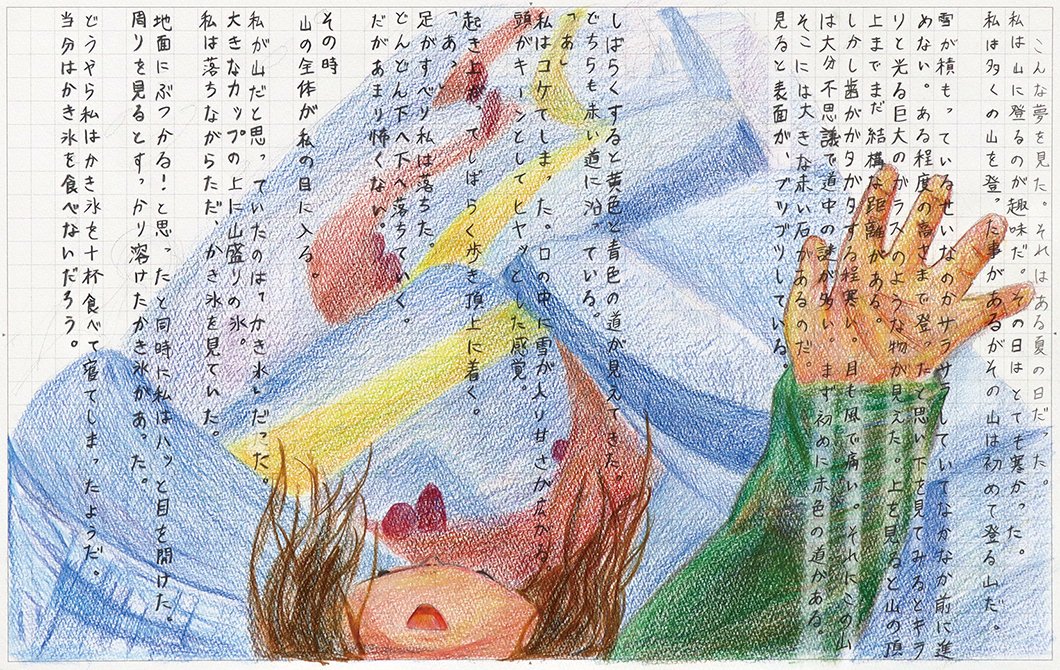 こんな夢を見た。それはある夏の日だった。
私は山に登るのが趣味だ。その日はとても寒かった。
私は多くの山を登った事があるがその山は初めて登る山だ。
雪が積もっているせいなのかサラサラしていてなかなか前に進
めない。ある程度の高さまで登ったと思い下を見てみるとキラ
リと光る巨大のガラスのような物が見えた。上を見ると山の頂
上まではまだ結構な距離がある。
しかし歯がガタガタする程寒い。目も風で痛い。それにこの山
は大分不思議で道中の謎が多い。まず初めに赤色の道がある。
そこには大きな赤い石があるのだ。
見ると表面が、ブツブツしている。
しばらくすると黄色と青色の道が見えてきた。
どちらも赤い道に沿っている。
「あ」
私はコケてしまった。口の中に雪が入り甘さが広がる
頭がキーンとしてヒヤッとした感覚。
起き上がってしばらく歩き頂上に着く。
「あ、
足がすべり私は落ちた。
どんどん下へ下へ落ちていく。
だがあまり怖くない。
その時
山の全体が私の目に入る。
私が山だと思っていたのは「かき氷」だった。
大きなカップの上に山盛りの氷。
私は落ちながらただ、かき氷を見ていた。
地面にぶつかる！と思った と同時に私はハッと目を開けた。
周りを見るとすっかり溶けたかき氷があった。
どうやら私はかき氷を十杯食べて寝てしまったようだ。
当分はかき氷を食べないだろう。